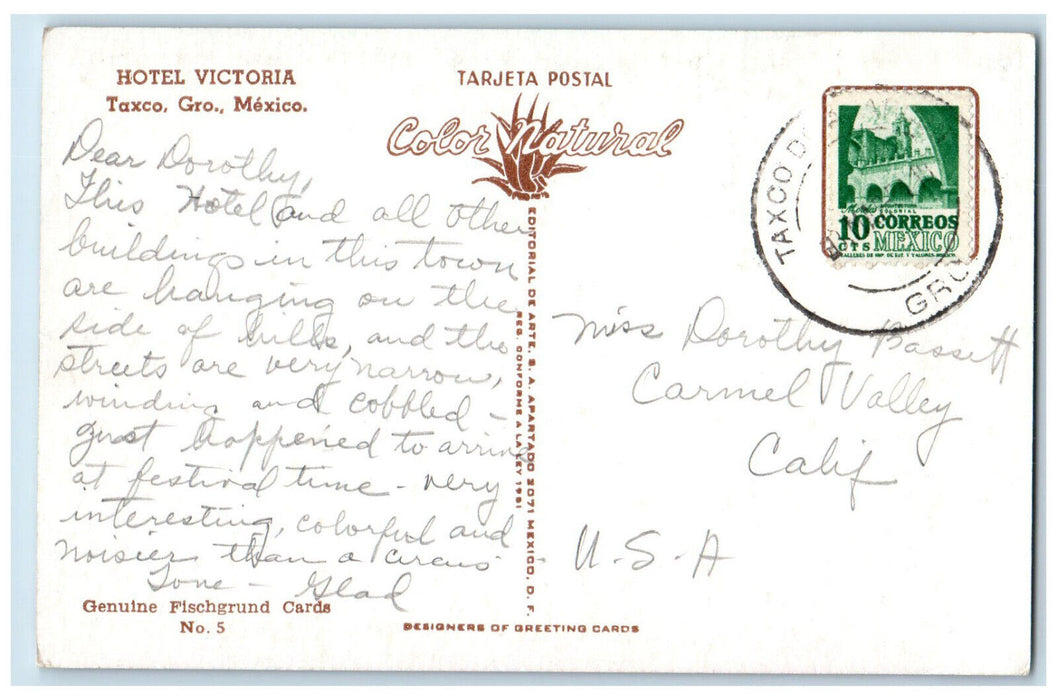 HOTEL VICTORIA
Taxco, Gro., México.
TARJETA POSTAL
Color Natural
Dear Dorothy,
This Hotel and all other
buildings in this town
are hanging on the
side of hills, and the
streets are very narrow,
winding and cobbled -
just happened to arrive
at festival time - very
interesting, colorful and
noisier than a circus
Love - Glad
Genuine Fischgrund Cards
No. 5
EDITORIAL DE ARTE, S. A. APARTADO 2071 MEXICO, D. F.
REG. CONFORME A LA LEY 1951
DESIGNERS OF GREETING CARDS
TAXCO D
GRO
COLONIAL
10 CORREOS
CTS MEXICO
TALLERES DE IMP. DE EST. Y VALORES-MEXICO
Miss Dorothy Bassett
Carmel Valley
Calif
U-S-A